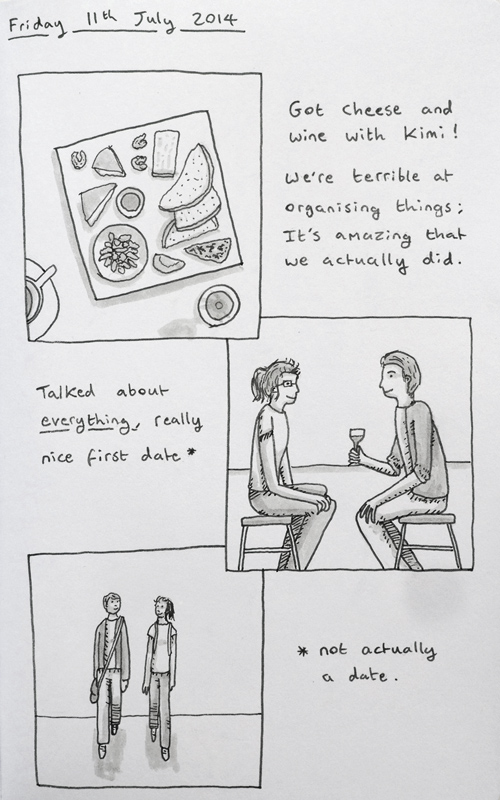 Friday 11th July 2014
Got cheese and
wine with Kimi!
We're terrible at
organising things;
It's amazing that
we actually did.
Talked about
everything, really
nice first date *
* not actually
a date.